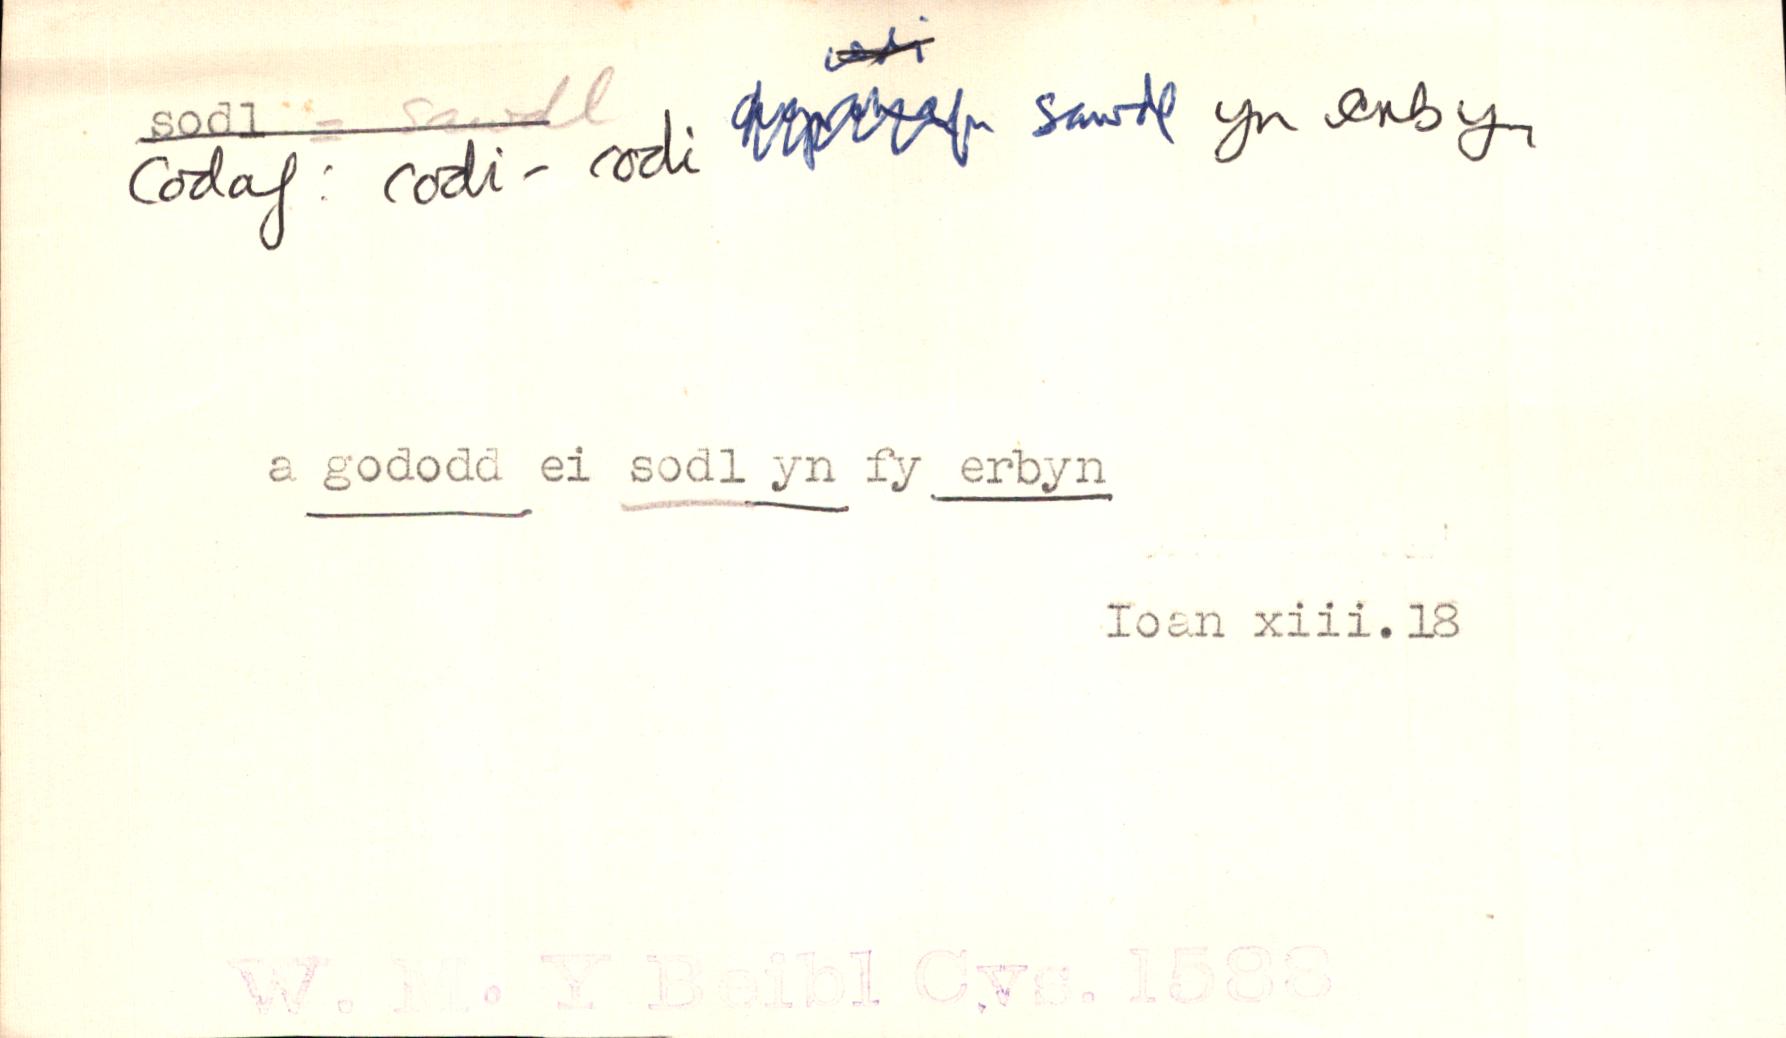 sodl = sawdl
Codaf: codi - codi sawdl yn erbyn
a gododd ei sodl yn fy erbyn
Ioan xiii.18
W. M. Y Beibl Cys. 1588